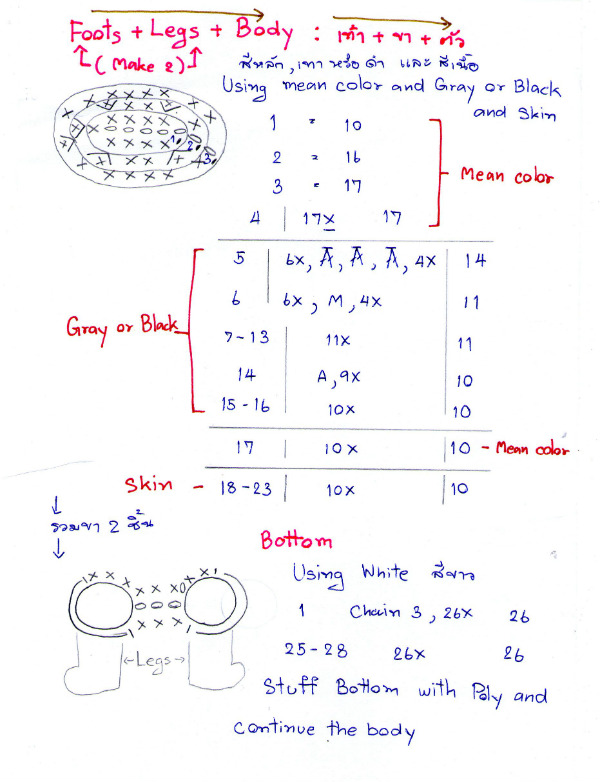 Foots + Legs + Body : เท้า + ขา + ตัว
(Make 2)
สีหลัก, เทา หรือ ดำ และ สีเนื้อ
Using mean color and Gray or Black
and Skin
1 = 10
2 = 16
3 = 17
4 17x 17
Mean color
5 6x, A̅, A̅, A̅, 4x 14
6 6x, M, 4x 11
7-13 11x 11
14 A, 9x 10
15-16 10x 10
Gray or Black
17 10x 10 - Mean color
Skin - 18-23 10x 10
รวมขา 2 ชิ้น
Bottom
Using White สีขาว
1 Chain 3, 26x 26
25-28 26x 26
Stuff Bottom with Poly and
continue the body
Legs
1 2 3